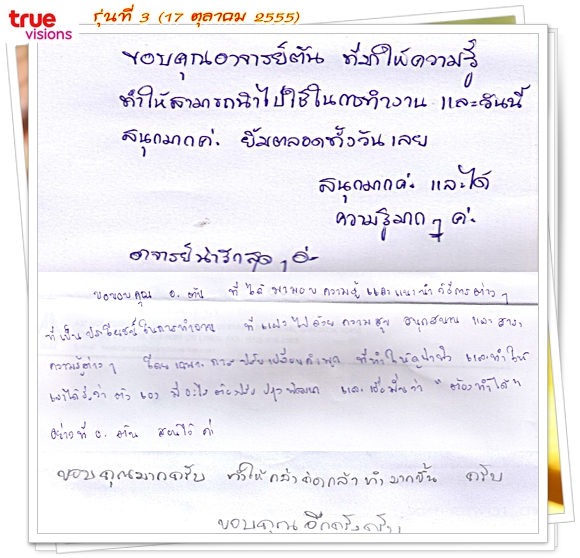 true
visions
รุ่นที่ 3 (17 ตุลาคม 2555)
ขอบคุณอาจารย์ตัน ที่ทำให้ความรู้
ทำให้สามารถนำไปใช้ในการทำงาน และวันนี้
สนุกมากค่ะ ยิ้มตลอดทั้งวันเลย
สนุกมากค่ะ และได้
ความรู้มาก ๆ ค่ะ
อาจารย์น่ารักสุด ๆ
ขอขอบคุณ อ. ตัน ที่ได้มามอบความรู้ และแนะนำวิธีการต่าง ๆ
ที่เป็นประโยชน์ในการทำงาน ที่แฝงไปด้วยความสุข สนุกสนาน และสาระ
ความรู้ต่าง ๆ โดยเฉพาะ การปรับเปลี่ยนคำพูด ที่ทำให้ดูน่าฟัง และทำให้
เราได้รู้ว่า ตัวเอง มีอะไรต้องปรับปรุงพัฒนา และเชื่อมั่นว่า "ต้องทำได้"
อย่างที่ อ. ตัน สอนไว้ ค่ะ
ขอบคุณมากครับ ทำให้กล้าคิดกล้าทำมากขึ้น ครับ
ขอบคุณอีกครั้งครับ